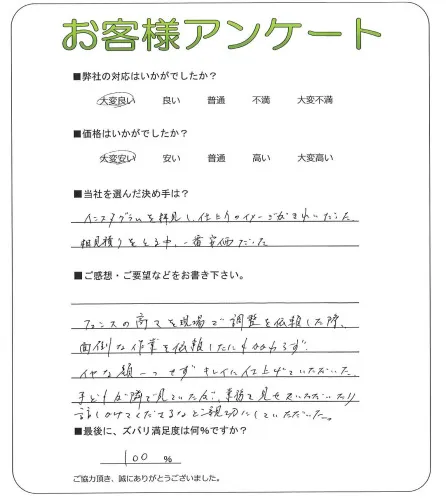 お客様アンケート
■弊社の対応はいかがでしたか？
大変良い 良い 普通 不満 大変不満
■価格はいかがでしたか？
大変安い 安い 普通 高い 大変高い
■当社を選んだ決め手は？
インスタグラムを拝見し、仕上りのイメージがきれいだった。
相見積りをとる中、一番安価だった
■ご感想・ご要望などをお書き下さい。
フェンスの高さを現場で調整を依頼した際、
面倒な作業を依頼したにもかかわらず、
イヤな顔一つせずキレイに仕上げていただいた。
子どもが隣で見ていたが、 見せていただいたり
話しかけてくださるなど親切にしていただいた。
■最後に、ズバリ満足度は何％ですか？
100 ％
ご協力頂き、誠にありがとうございました。